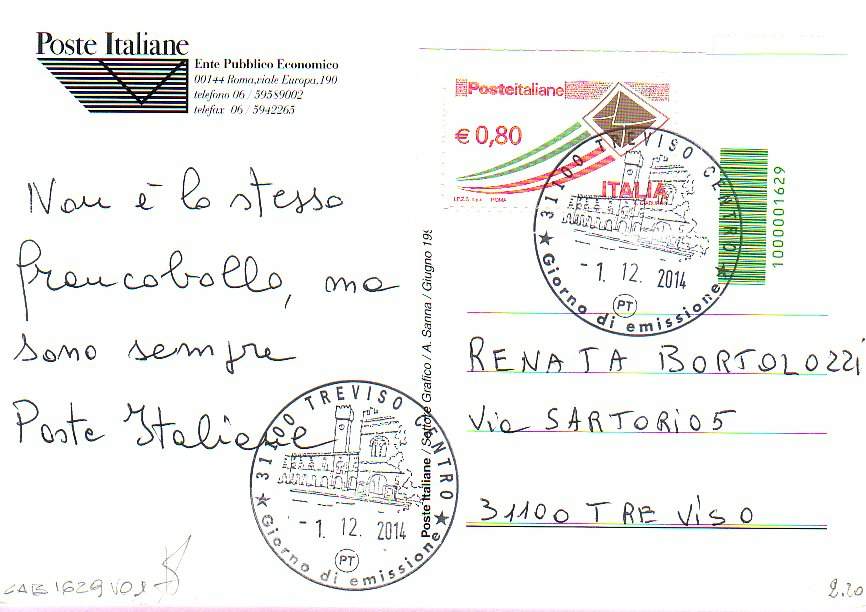 Poste Italiane
Ente Pubblico Economico
00144 Roma,viale Europa,190
telefono 06 / 59589002
telefax 06 / 5942265
Non è lo stesso
francobollo, ma
sono sempre
Poste Italiane
31100 TREVISO CENTRO
- 1. 12. 2014
PT
Giorno di emissione
Poste Italiane / Settore Grafico / A. Sanna / Giugno 199
Posteitaliane
€ 0,80
ITALIA
I.P.Z.S. S.p.A. ROMA
31100 TREVISO CENTRO
- 1. 12. 2014
PT
Giorno di emissione
1000001629
RENATA BORTOLOZZI
Via SARTORIO 5
31100 TREVISO
1629
2.20